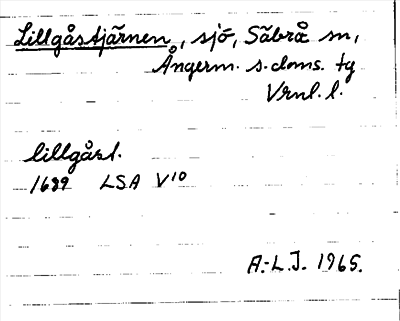 Lillgåstjärnen, sjö, Säbrå sn,
Ångerm. s. doms. tg
Vrnl. l.
lillgåst.
1689 LSA V10
A.-L.J. 1965.